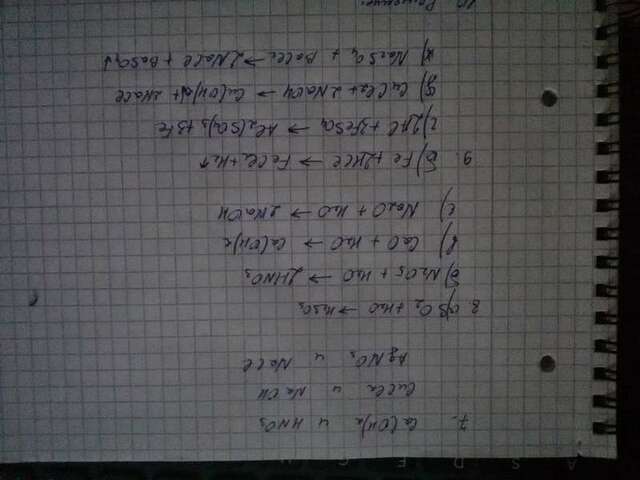 7. Ca(OH)₂ и HNO₃
CuCl₂ и NaOH
AgNO₃ и NaCl
8. а) SO₂ + H₂O → H₂SO₃
б) N₂O₅ + H₂O → 2HNO₃
в) CaO + H₂O → Ca(OH)₂
г) Na₂O + H₂O → 2NaOH
9. б) Fe + 2HCl → FeCl₂ + H₂↑
г) 2Al + 3FeSO₄ → Al₂(SO₄)₃ + 3Fe
д) CuCl₂ + 2NaOH → Cu(OH)₂↓ + 2NaCl
ж) Na₂SO₄ + BaCl₂ → 2NaCl + BaSO₄↓
10. Решение: